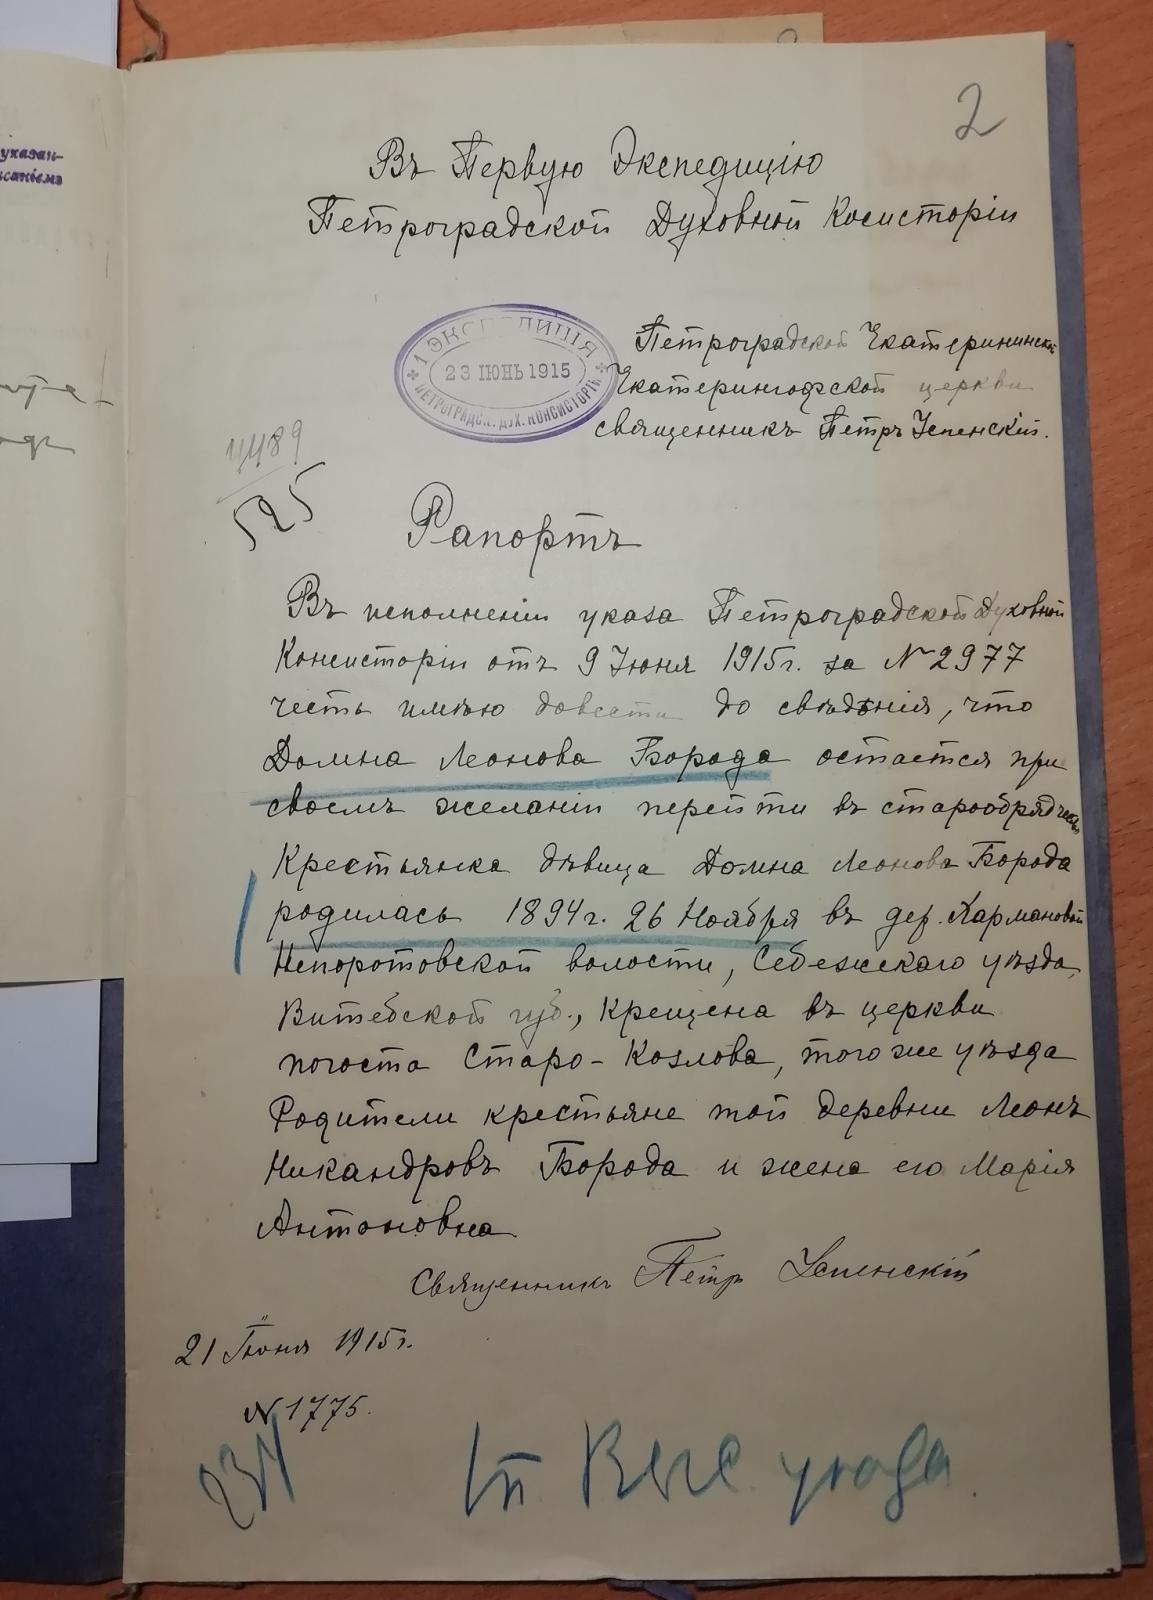 2
Въ Первую Экспедицію
Петроградской Духовной Косисторіи
указан-
исаніемъ
1 ЭКСПЕДИЦІЯ
23 ІЮНЬ 1915
ПЕТРОГРАДСК. ДУХ. КОНСИСТОРІИ
Петроградской Екатерининской
Екатерингофской церкви
священникъ Петръ Успенскій.
525
Рапортъ
Въ исполненіи указа Петроградской Духовной
Консисторіи отъ 9 Іюня 1915 г. за № 2977
честь имѣю довести до свѣдѣнія, что
Домна Леонова Борода остается при
своемъ желаніи перейти въ старообрядчество
Крестьянка дѣвица Домна Леонова Борода
родилась 1894 г. 26 Ноября въ дер. Кармановой
Непоротовской волости, Себежскаго уѣзда,
Витебской губ., крещена въ церкви
погоста Старо-Козлова, того же уѣзда
Родители крестьяне той деревни Леонъ
Никандровъ Борода и жена его Марія
Антоновна.
Священникъ Петръ Успенскій
21 Іюня 1915 г.
№ 1775.